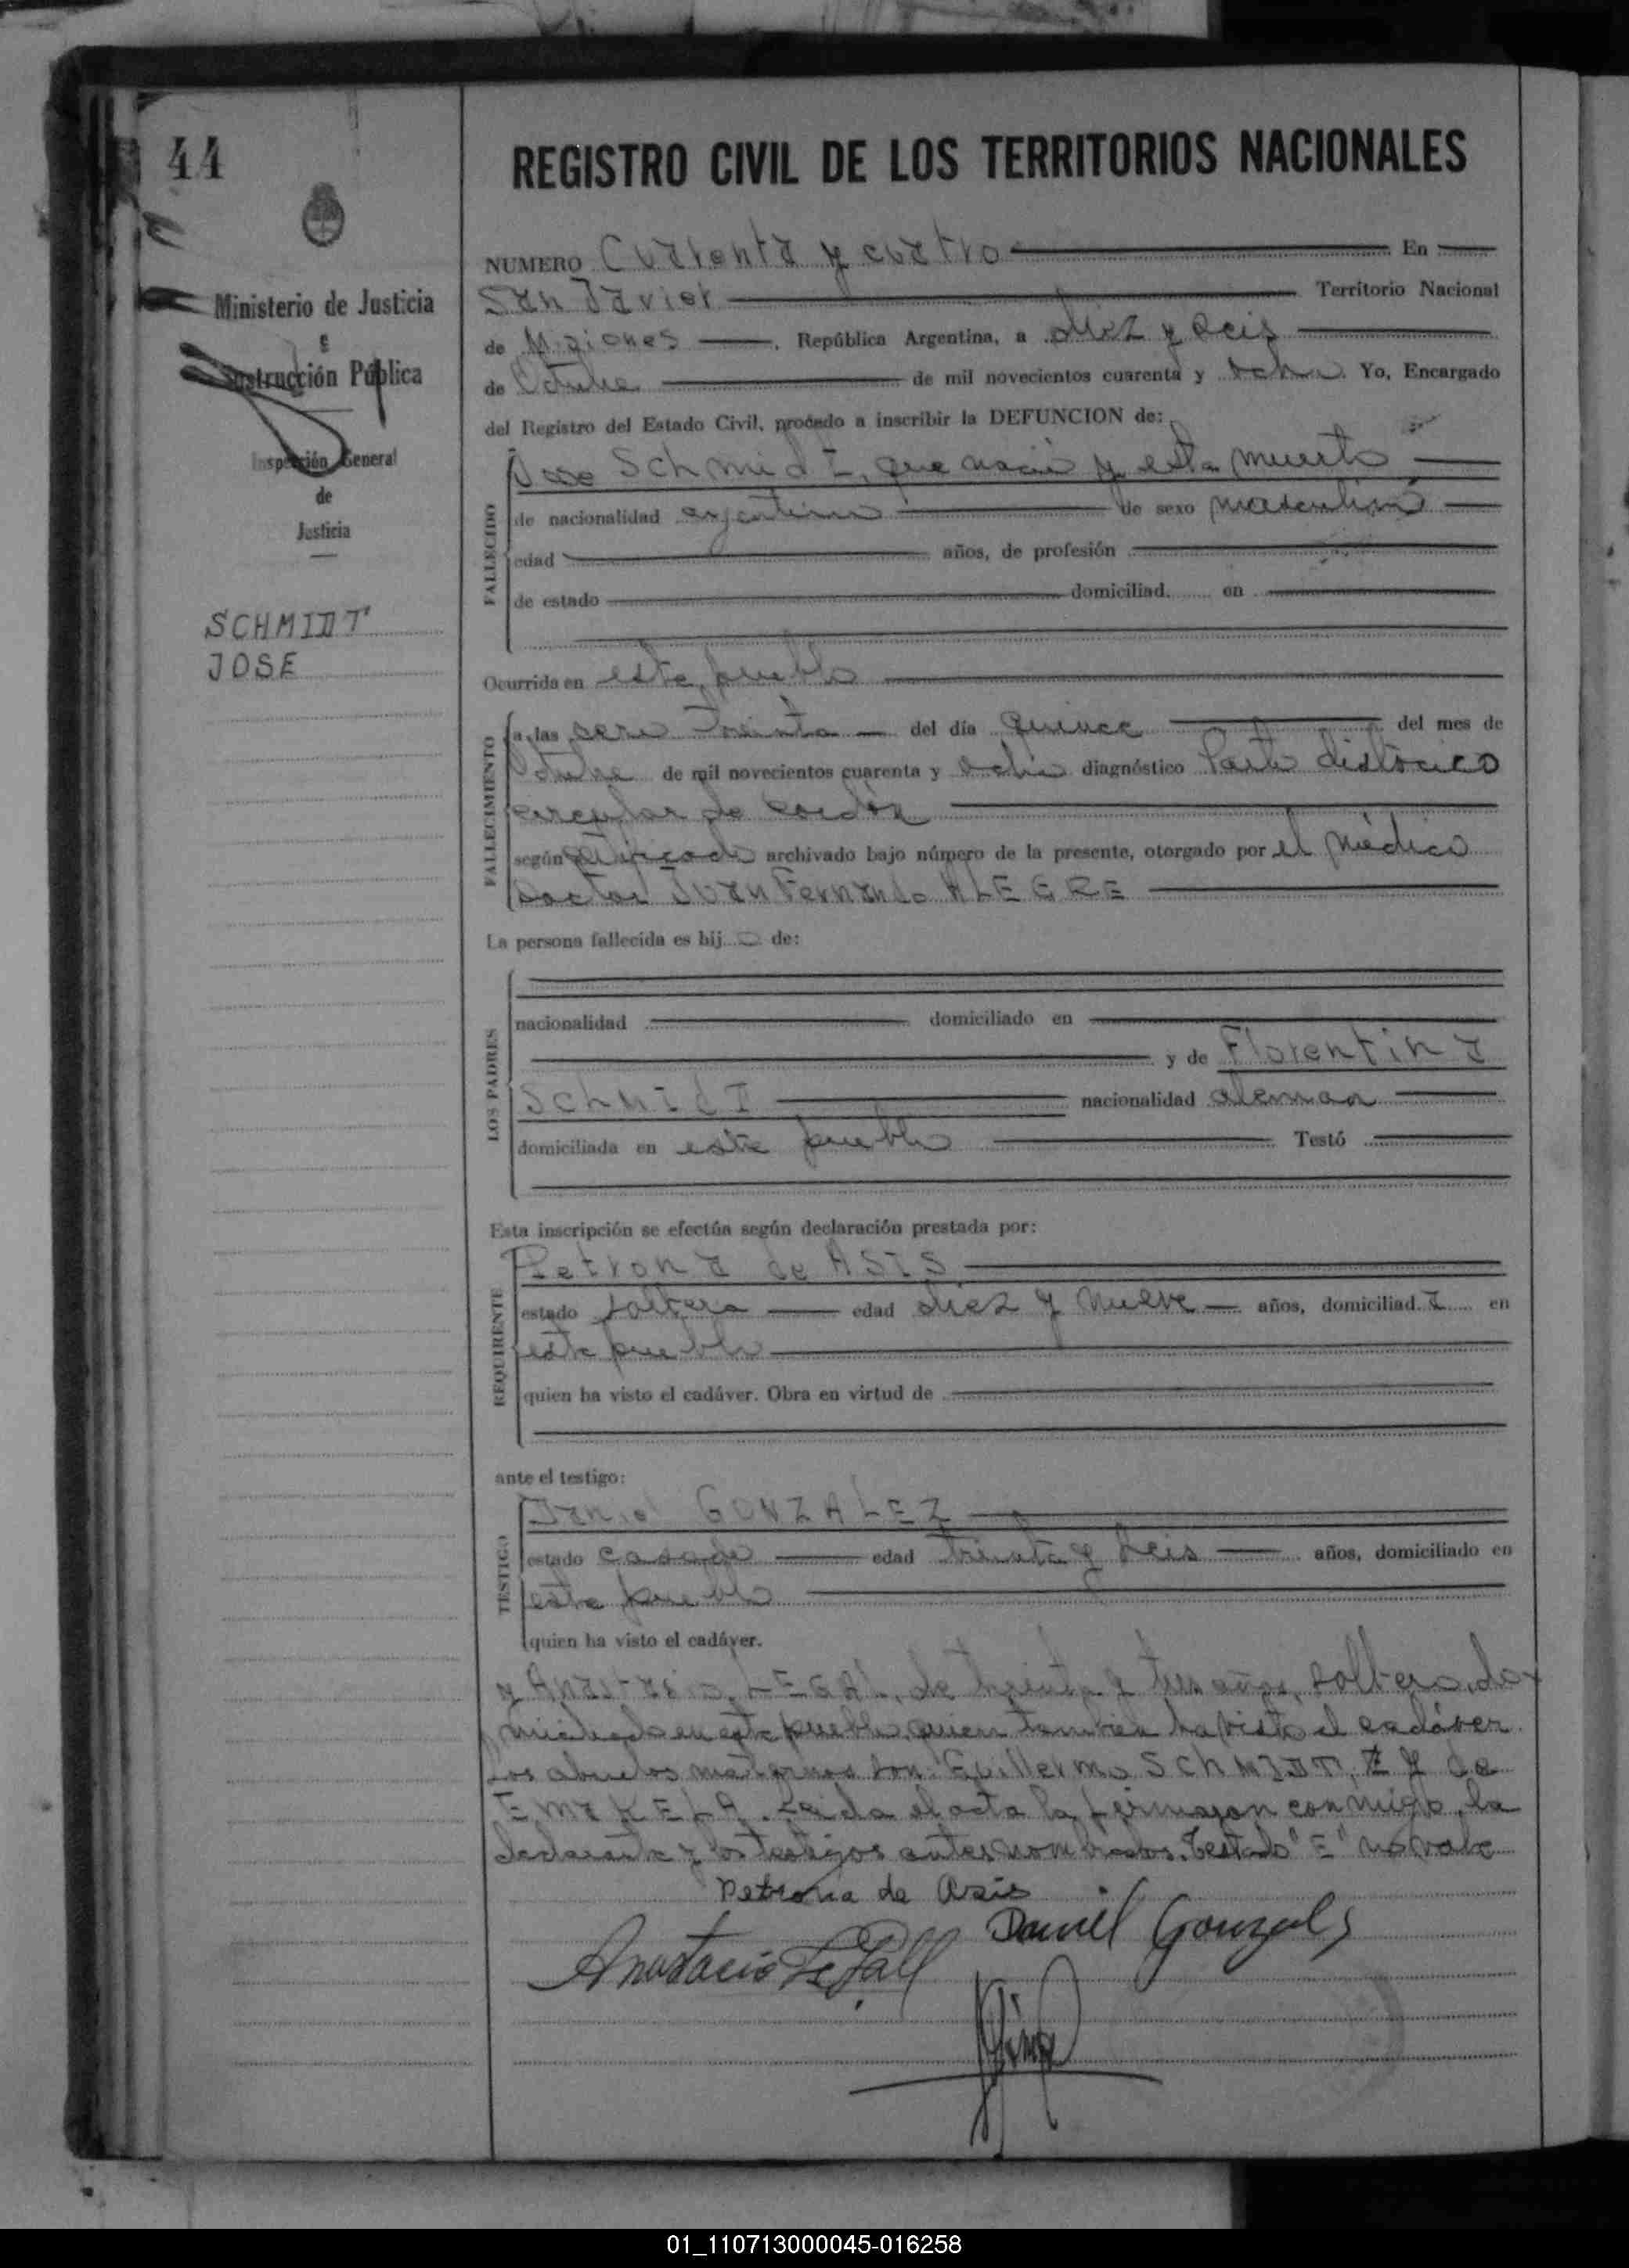 44
Ministerio de Justicia
e
Instrucción Pública
Inspección General
de
Justicia
SCHMIDT
JOSE
REGISTRO CIVIL DE LOS TERRITORIOS NACIONALES
NUMERO Cuarenta y cuatro En
San Javier Territorio Nacional
de Misiones , República Argentina, a diez y seis
de Octubre de mil novecientos cuarenta y ocho Yo, Encargado
del Registro del Estado Civil, procedo a inscribir la DEFUNCION de:
FALLECIDO
Jose Schmidt, que nació y esta muerto
de nacionalidad argentino de sexo masculino
edad años, de profesión
de estado domiciliad en
Ocurrida en este pueblo
FALLECIMIENTO
a las cero treinta del día quince del mes de
Octubre de mil novecientos cuarenta y ocho diagnóstico Parto distócico
circular de cordón
según certificado archivado bajo número de la presente, otorgado por el médico
Doctor Juan Fernando ALEGRE
La persona fallecida es hijo de:
LOS PADRES
nacionalidad domiciliado en
y de Florentina
Schmidt nacionalidad aleman
domiciliada en este pueblo Testó
Esta inscripción se efectúa según declaración prestada por:
REQUIRENTE
Petrona de ASIS
estado soltera edad diez y nueve años, domiciliada en
este pueblo
quien ha visto el cadáver. Obra en virtud de
ante el testigo:
TESTIGO
Daniel GONZALEZ
estado casado edad treinta y seis años, domiciliado en
este pueblo
quien ha visto el cadáver.
y Anastacio LEGAL, de treinta y tres años, soltero, do-
miciliado en este pueblo, quien tambien ha visto el cadáver.
Los abuelos maternos son: Guillermo SCHMIDT, E y de
Ema KELA. Leida el acta la firmaron conmigo, la
declarante y los testigos antes nombrados. Testado "E" no vale
Petrona de Asis
Daniel Gonzales
Anastacio
01_110713000045-016258